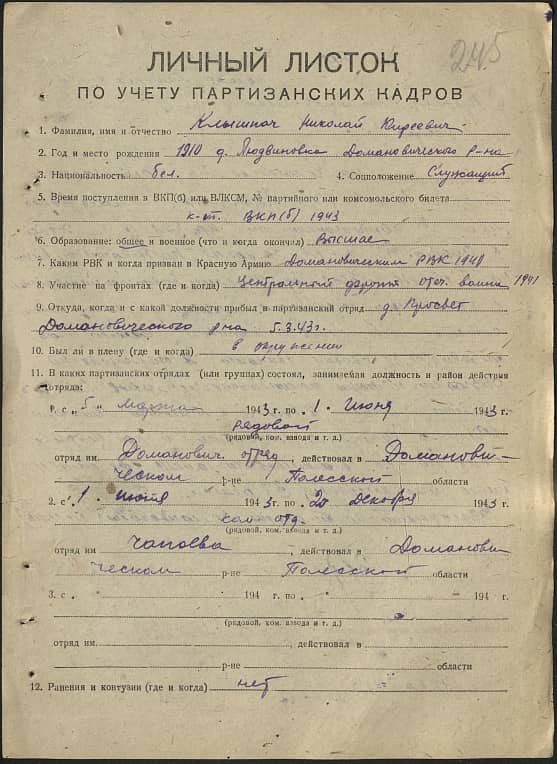 245
ЛИЧНЫЙ ЛИСТОК
ПО УЧЕТУ ПАРТИЗАНСКИХ КАДРОВ
1. Фамилия, имя и отчество Клышпач Николай Киреевич
2. Год и место рождения 1910 д. Людвиновка Домановического р-на
3. Национальность бел. 4. Соцположение Служащий
5. Время поступления в ВКП(б) или ВЛКСМ, № партийного или комсомольского билета
к-т. ВКП(б) 1943
6. Образование: общее и военное (что и когда окончил) Высшее
7. Каким РВК и когда призван в Красную Армию Домановическим РВК 1941
8. Участие на фронтах (где и когда) Центральный фронт отеч. война 1941
9. Откуда, когда и с какой должности прибыл в партизанский отряд д. Просвет
Домановического р-на 5.3.43 г.
10. Был ли в плену (где и когда) в окружении
11. В каких партизанских отрядах (или группах) состоял, занимаемая должность и район действия
отряда:
1. с „5“ марта 1943 г. по „1“ Июня 1943 г.
рядовой
(рядовой, ком. взвода и т. д.)
отряд им Доманович. отряд, действовал в Доманови-
ческом р-не Полесской области
2. с „1“ июня 1943 г. по „20“ декабря 1943 г.
ком. отд.
(рядовой, ком. взвода и т. д.)
отряд им Чапаева, действовал в Доманови
ческом р-не Полесской области
3. с „ “ 194 г. по „ “ 194 г.
(рядовой, ком. взвода и т. д.)
отряд им. , действовал в
р-не области
12. Ранения и контузии (где и когда) нет